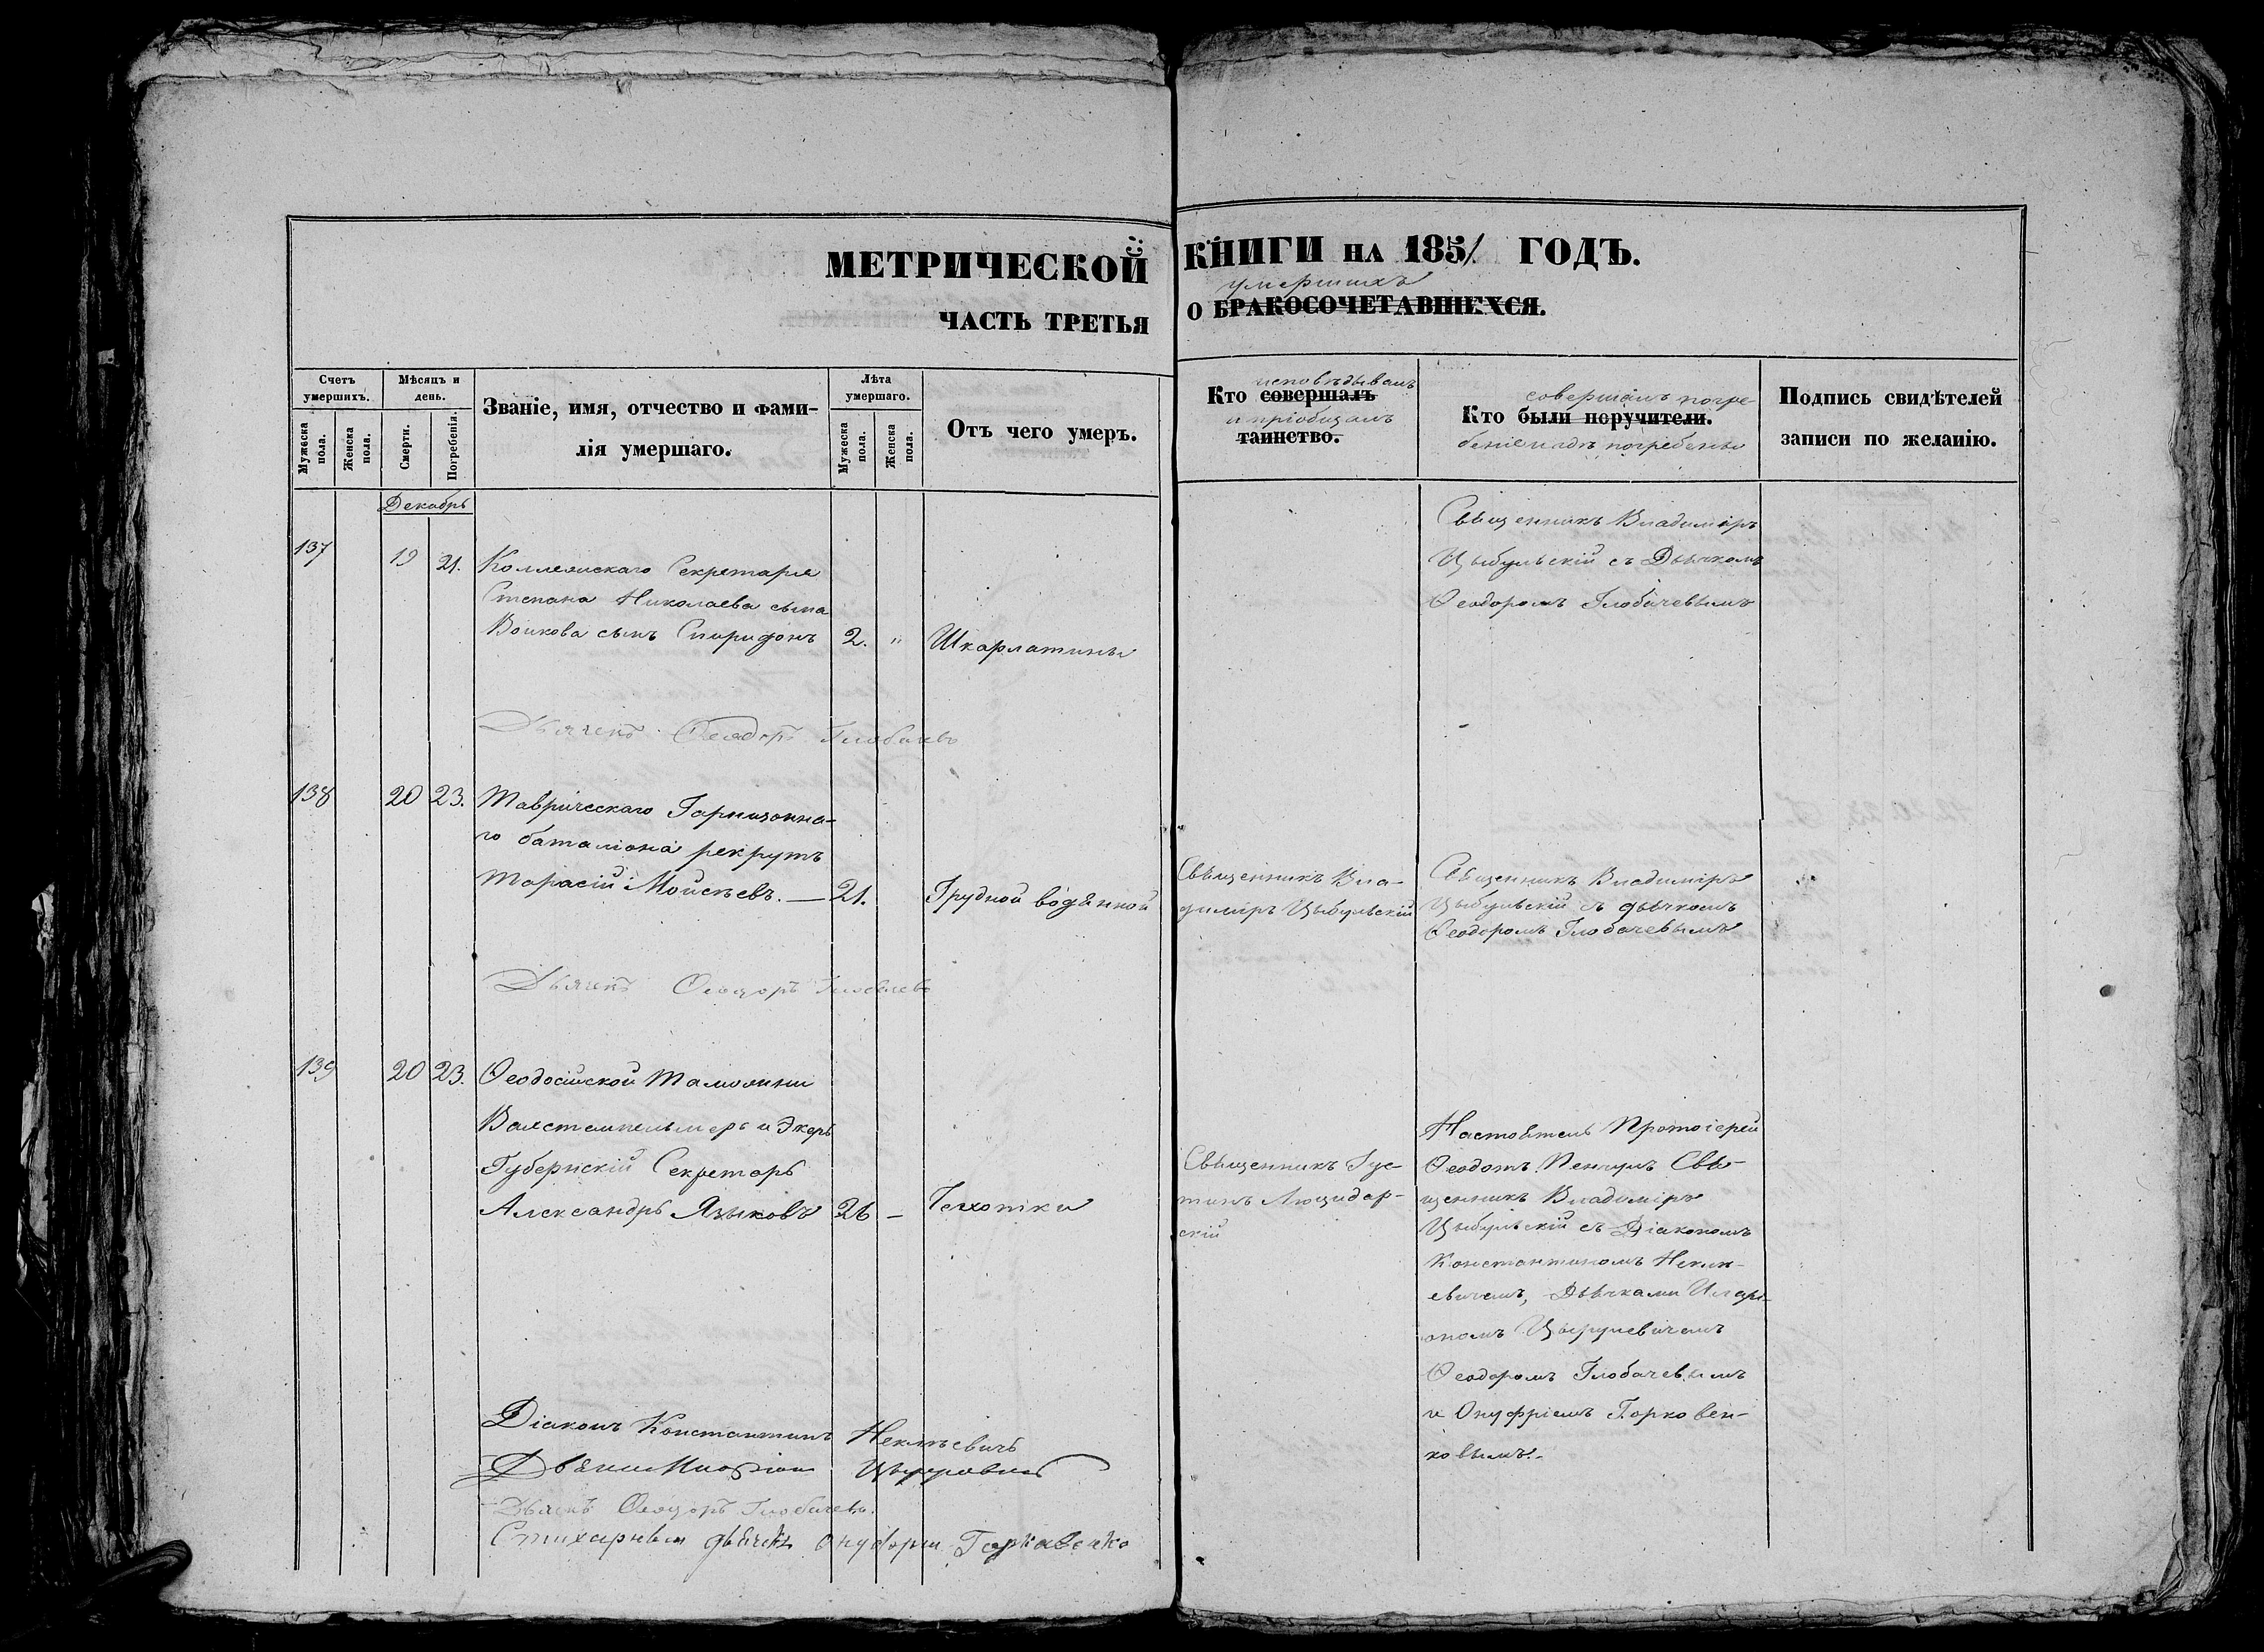 МЕТРИЧЕСКОЙ КНИГИ НА 1851 ГОДЪ.
умершихъ
ЧАСТЬ ТРЕТЬЯ О БРАКОСОЧЕТАВШИХСЯ.
Счетъ умершихъ.
Мужеска пола.
Женска пола.
Мѣсяцъ и день.
Смерти.
Погребенія.
Званіе, имя, отчество и фами-
лія умершаго.
Лѣта умершаго.
Мужеска пола.
Женска пола.
Отъ чего умеръ.
исповѣдывалъ
Кто совершалъ
и пріобщалъ
таинство.
совершалъ погре-
Кто были поручители.
беніе
Подпись свидѣтелей
записи по желанію.
Декабрь
137 19 21. Коллежскаго Секретаря
Степана Николаева сына
Воикова сынъ Спиридонъ 2. " Шкарлатины
Священникъ Владиміръ
Цыбульскій съ Дьячкомъ
Ѳеодоромъ Глобачевымъ
Дьячекъ Ѳеодоръ Глобачевъ
138 20 23. Таврическаго Гарнизонна-
го баталіона рекрутъ
Тарасій Мойсѣевъ. — 21. Грудной водянкой
Священникъ Вла-
диміръ Цыбульскій
Священникъ Владиміръ
Цыбульскій съ дьячкомъ
Ѳеодоромъ Глобачевымъ
Дьячекъ Ѳеодоръ Глобачевъ
139 20 23. Ѳеодосійской Таможни
Вагстемпельмеръ и Экеръ
Губернскій Секретарь
Александръ Языковъ 26 —
Священникъ Іус-
тинъ
скій
Настоятель Протоіерей
Ѳеодотъ Свя-
щенникъ Владиміръ
Цыбульскій съ Діакономъ
Константиномъ
евичемъ, Дьячками Иларі-
ономъ
Ѳеодоромъ Глобачевымъ
и Онуфріемъ Горковен-
ковымъ.
Діаконъ Константинъ
Дьячекъ Ѳеодоръ Глобачевъ.
Стихарный дьячекъ Онуфрій Горкавенко